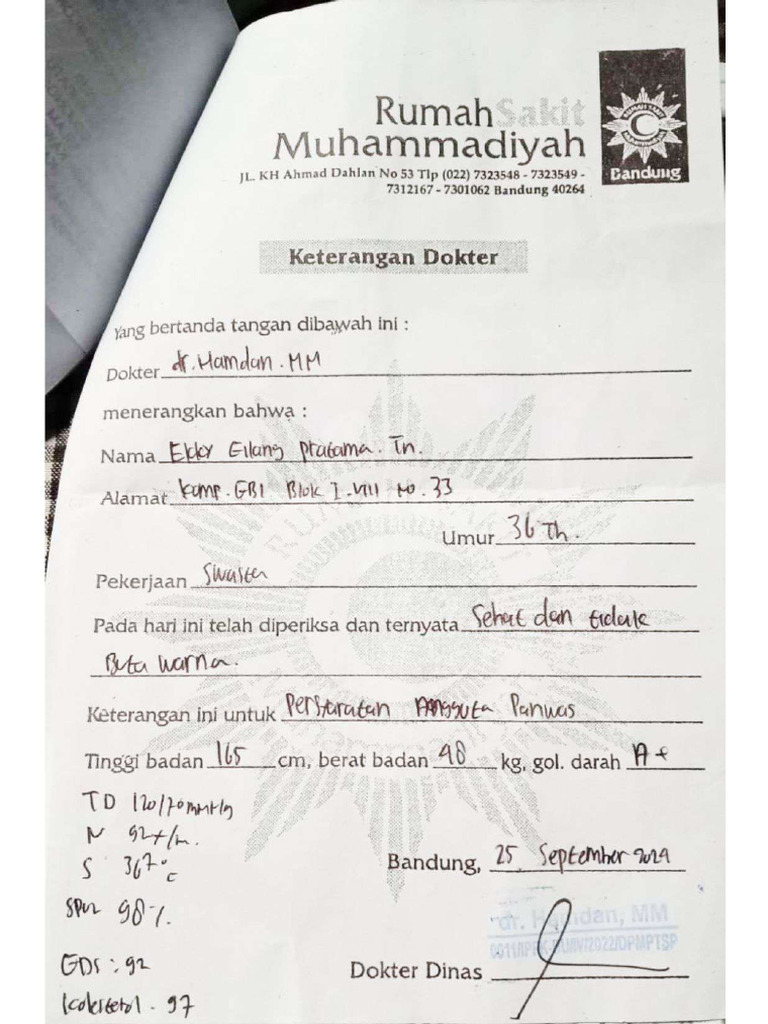 Rumah Sakit
Muhammadiyah
Bandung
JL. KH Ahmad Dahlan No 53 Tlp (022) 7323548 - 7323549 -
7312167 - 7301062 Bandung 40264
Keterangan Dokter
Yang bertanda tangan dibawah ini :
Dokter dr. Hamdan. MM
menerangkan bahwa :
Nama Ekky Gilang Pratama. Tn.
Alamat Komp. GBI Blok I. VIII No. 33
Umur 36 Th.
Pekerjaan Swasta
Pada hari ini telah diperiksa dan ternyata Sehat dan tidak
Buta warna.
Keterangan ini untuk Persyaratan Anggota Panwas
Tinggi badan 165 cm, berat badan 48 kg, gol. darah A+
TD 120/70 mmHg
N 92 x/m.
S 367°c
SPO2 98 %.
Bandung, 25 September 2024
dr. Hamdan, MM
Dokter Dinas
GDS : 92
Kolesterol . 97